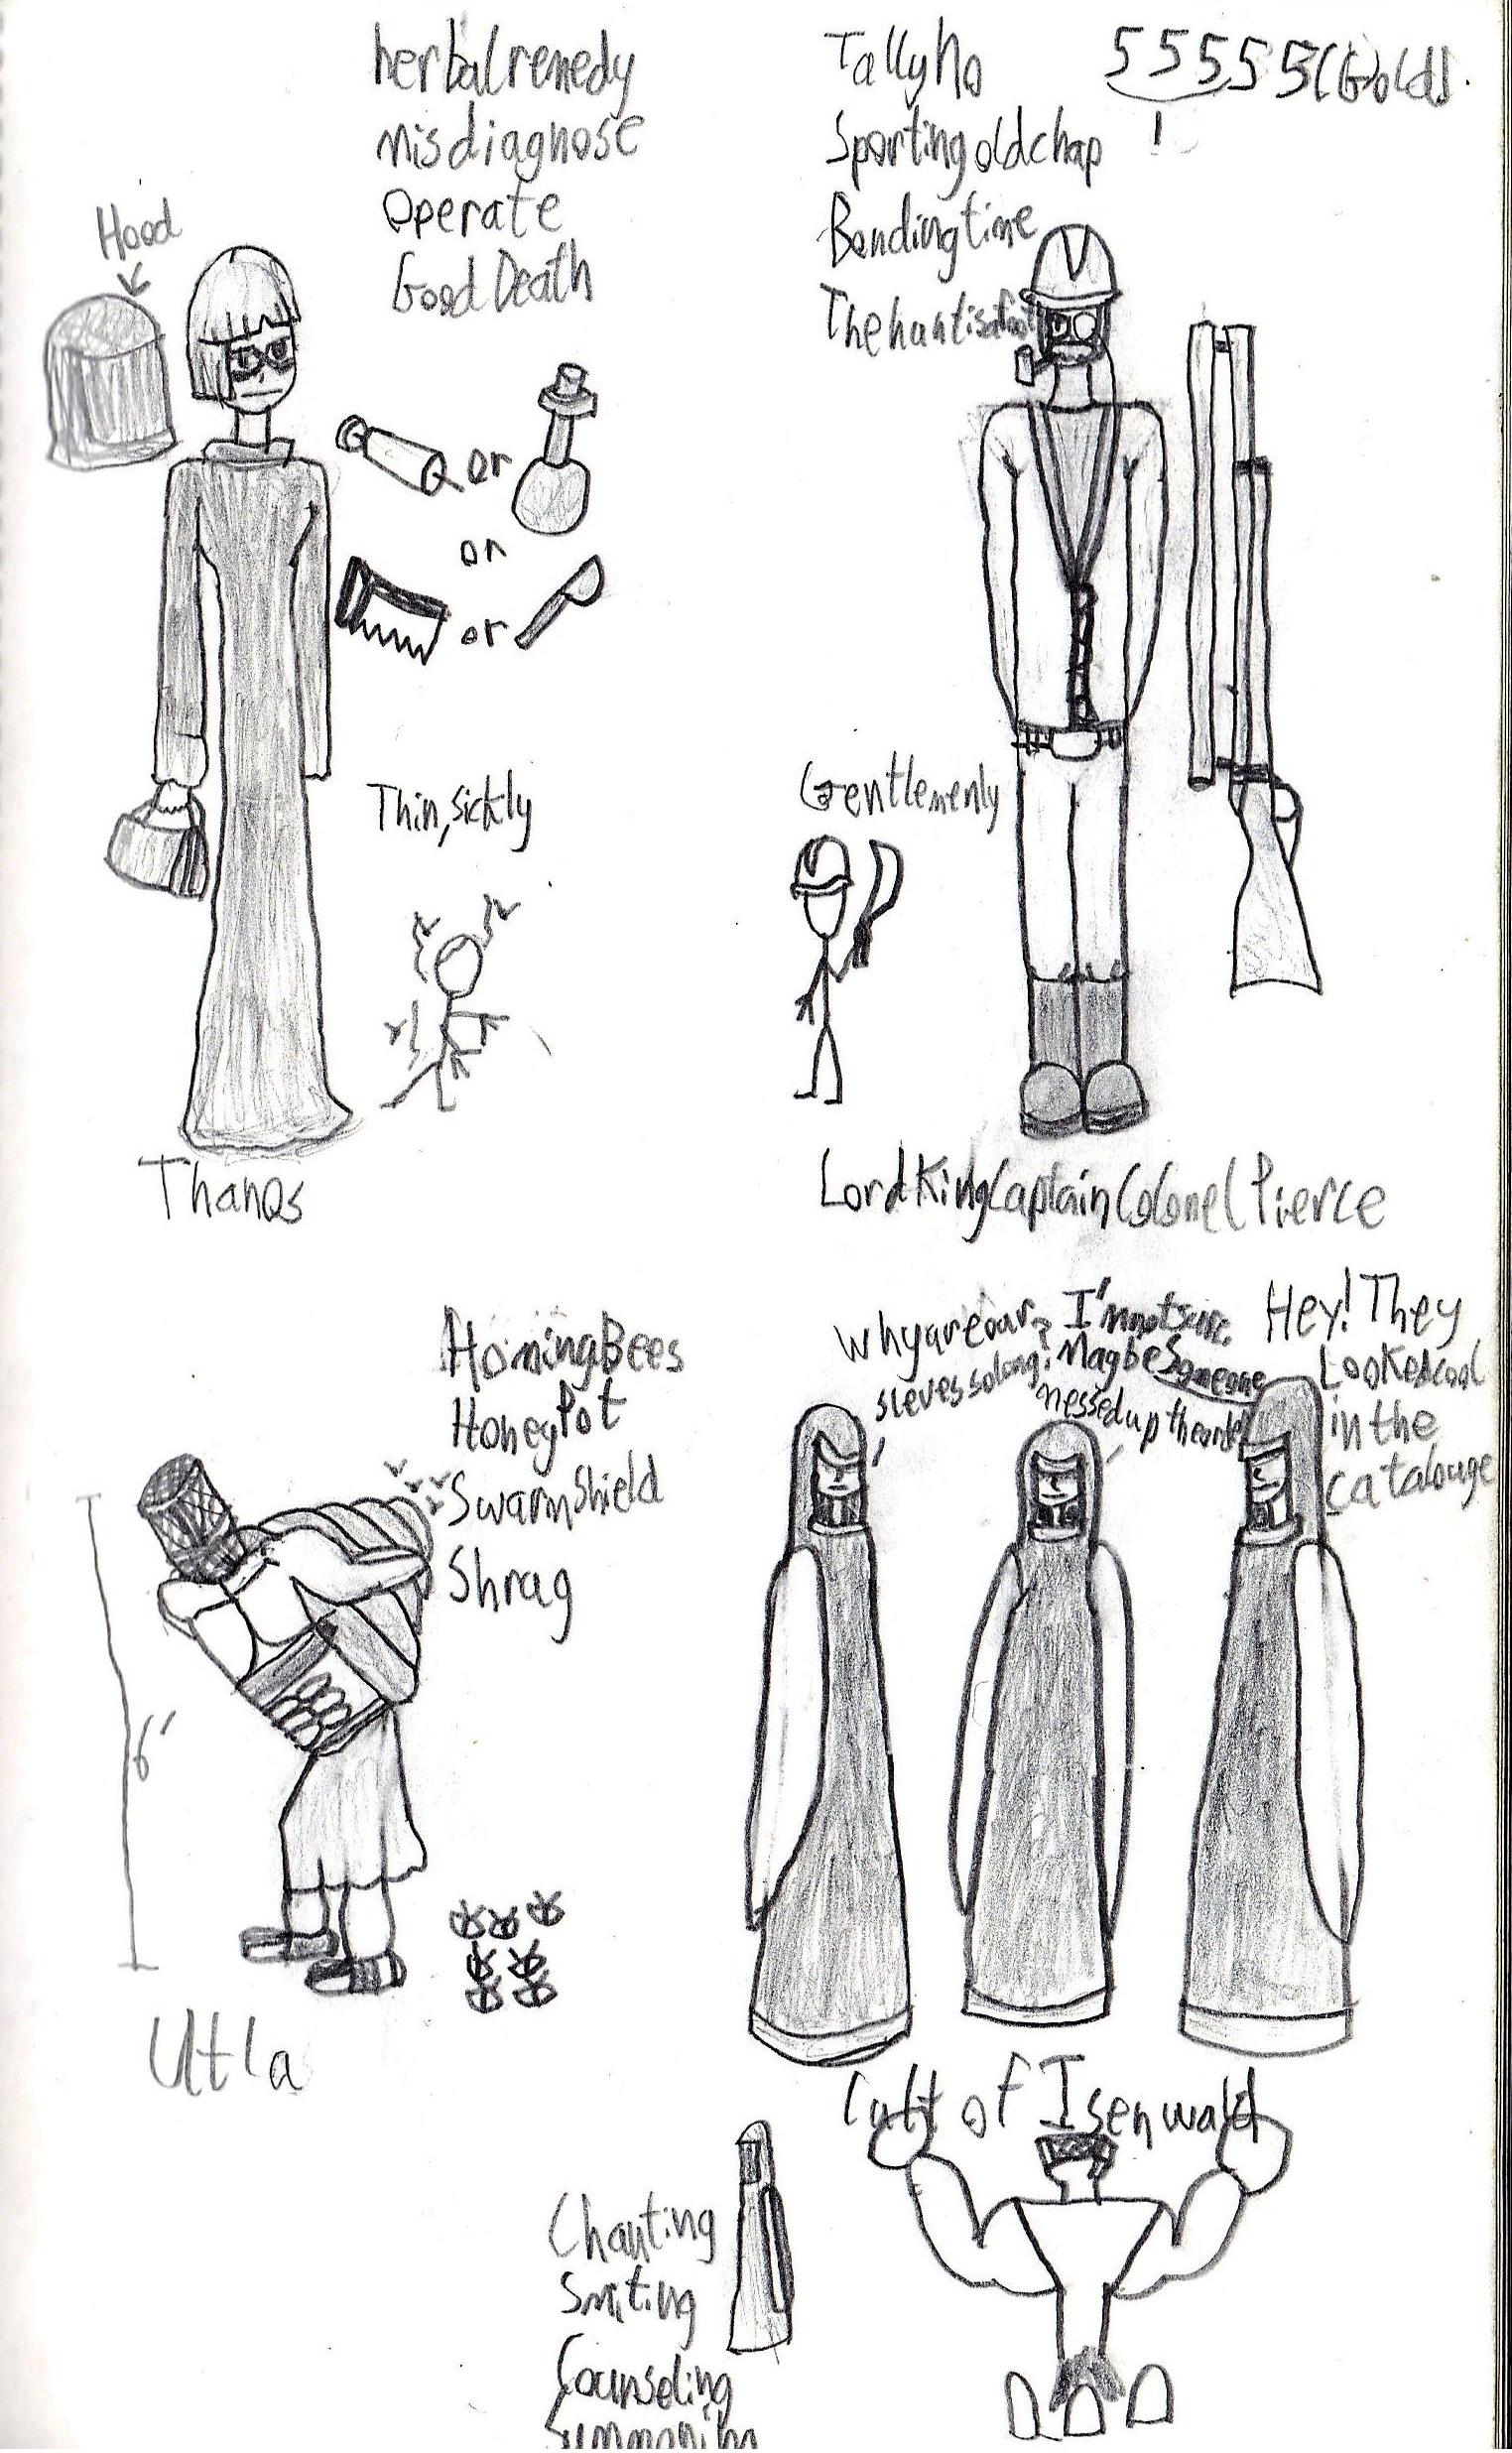 herbal remedy
misdiagnose
Operate
Good Death
Hood
or
or
or
Thin, sickly
Thanos
Tally ho
55555(G)olds.
!
Sporting old chap
Bending time
The hunt is afoot
Gentlemenly
Lord King Captain Colonel Pierce
Homing Bees
Honey Pot
Swarm Shield
Shrag
6'
Utla
Why are our
sleves so long?
I'm not sure.
Maybe Someone
messed up the order
Hey! They
Looked cool
in the
catalouge
Cult of Isenwald
Chanting
Smiting
Counseling
Summoning